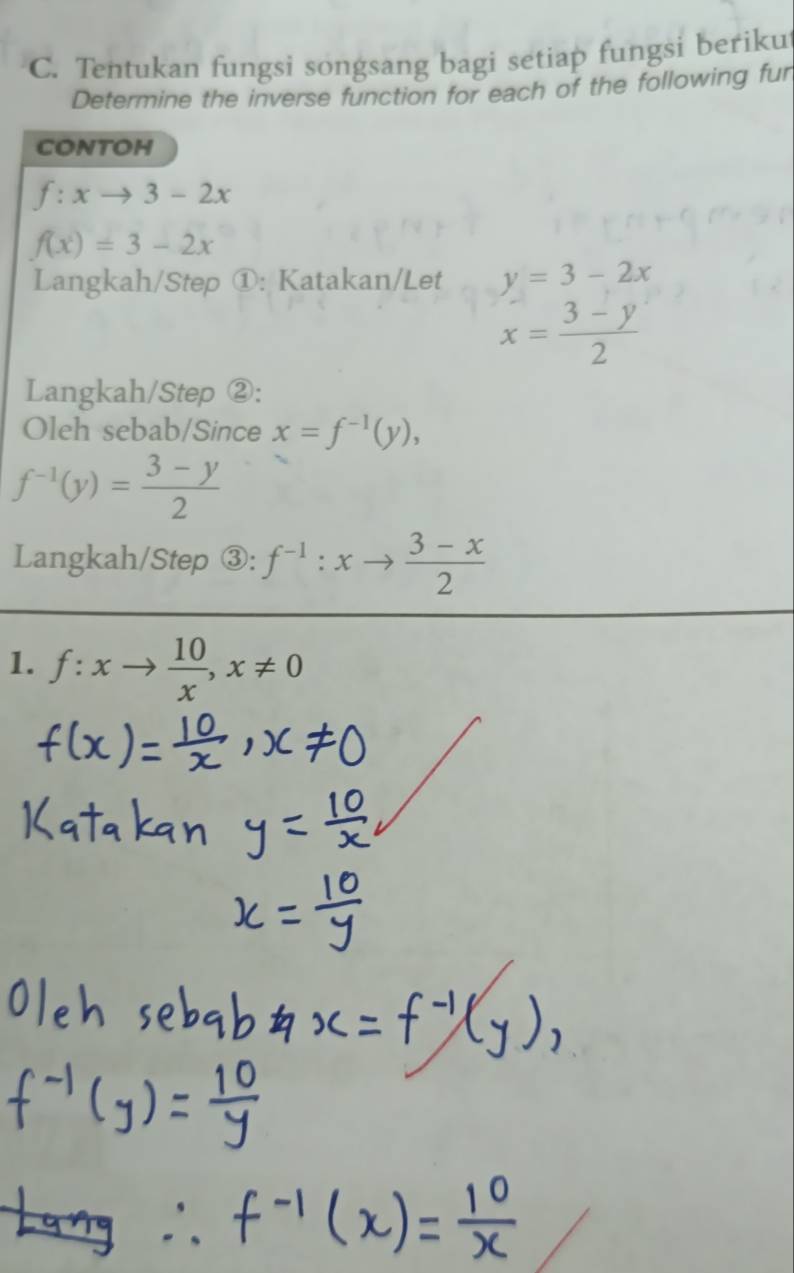 C. Tentukan fungsi songsang bagi setiap fungsi berikut
Determine the inverse function for each of the following fun
CONTOH
f : x → 3 – 2x
f(x) = 3 – 2x
Langkah/Step ①: Katakan/Let y = 3 – 2x
x = \frac{3 – y}{2}
Langkah/Step ②:
Oleh sebab/Since x = f⁻¹(y),
f⁻¹(y) = \frac{3 – y}{2}
Langkah/Step ③: f⁻¹ : x → \frac{3 – x}{2}
1. f : x → \frac{10}{x}, x ≠ 0
f(x) = \frac{10}{x}, x ≠ 0
Katakan y = \frac{10}{x}
x = \frac{10}{y}
Oleh sebab x = f⁻¹(y),
f⁻¹(y) = \frac{10}{y}
∴ f⁻¹(x) = \frac{10}{x}